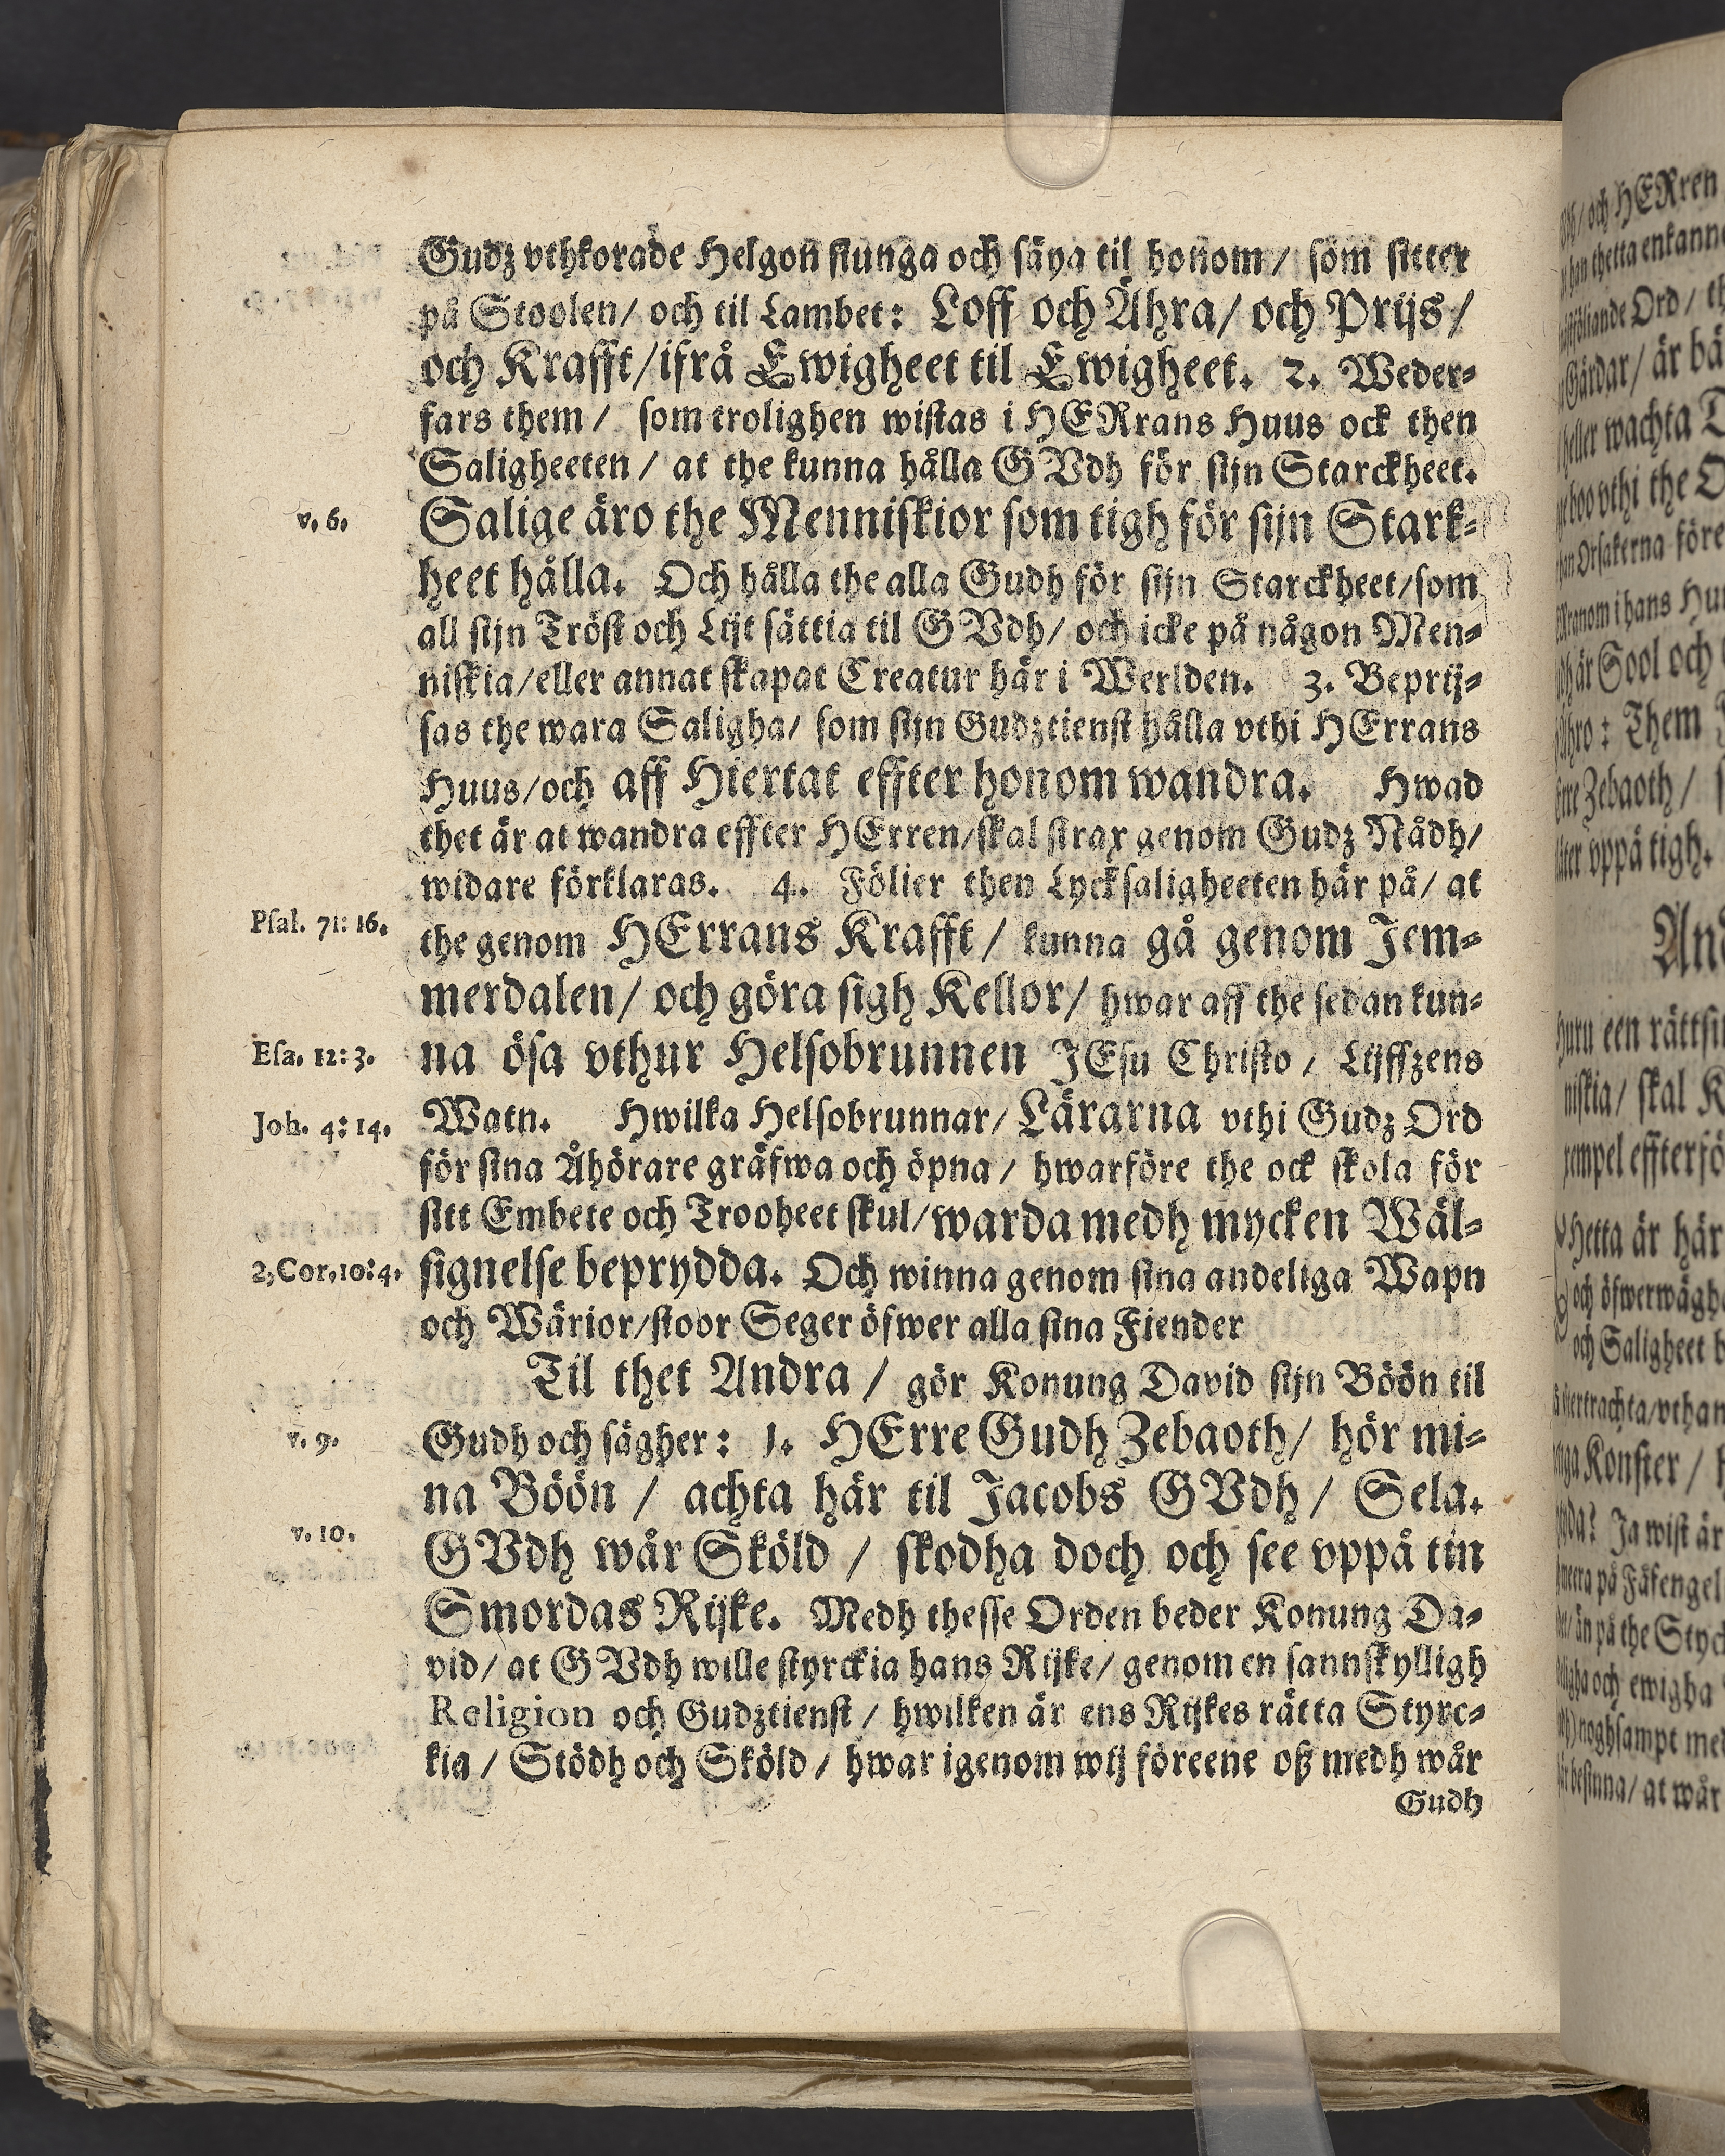 Gudz vthkorade Helgon siunga och säya til honom / som sitter
på Stoolen / och til Lambet: Loff och Ähra / och Prijs /
och Krafft / ifrå Ewigheet til Ewigheet. 2. Weder-
fars them / som trolighen wistas i HERrans Huus ock then
Saligheeten / at the kunna hålla GVdh för sijn Starckheet.
v. 6.
Salige äro the Menniskior som tigh för sijn Stark-
heet hålla. Och hålla the alla Gudh för sijn Starckheet / som
all sijn Tröst och Lijt sättia til GVdh / och icke på någon Men-
niskia / eller annat skapat Creatur här i Werlden. 3. Beprij-
sas the wara Saligha / som sijn Gudztienst hålla vthi HErrans
Huus / och aff Hiertat effter honom wandra. Hwad
thet är at wandra effter HErren / skal strax genom Gudz Nådh /
widare förklaras. 4. Fölier then Lycksaligheeten här på / at
Psal. 71: 16.
the genom HErrans Krafft / kunna gå genom Jem-
merdalen / och göra sigh Kellor / hwar aff the sedan kun-
Esa. 12: 3.
na ösa vthur Helsobrunnen JEsu Christo / Lijffzens
Joh. 4: 14.
Watn. Hwilka Helsobrunnar / Lärarna vthi Gudz Ord
för sina Åhörare gräfwa och öpna / hwarföre the ock skola för
sitt Embete och Trooheet skul / warda medh mycken Wäl-
2, Cor. 10: 4.
signelse beprydda. Och winna genom sina andeliga Wapn
och Wärior / stoor Seger öfwer alla sina Fiender
Til thet Andra / gör Konung David sijn Böön til
v. 9.
Gudh och sägher: 1. HErre Gudh Zebaoth / hör mi-
na Böön / achta här til Jacobs GVdh / Sela.
v. 10.
GVdh wår Sköld / skodha doch och see vppå tin
Smordas Rijke. Medh thesse Orden beder Konung Da-
vid / at GVdh wille styrckia hans Rijke / genom en sannskylligh
Religion och Gudztienst / hwilken är ens Rijkes rätta Styrc-
kia / Stödh och Sköld / hwar igenom wij föreene oß medh wår
Gudh